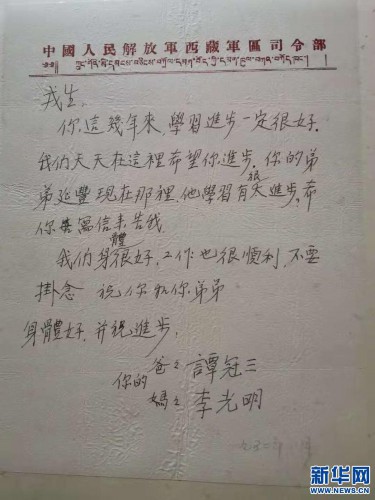 中國人民解放軍西藏軍區司令部
戎生.
你這幾年來,學習進步一定很好.
我们天天在這裡希望你進步.你的弟
弟延豐現在那裡.他學習有很大進步.希
你寫信来告我.
我们身體很好,工作也很順利,不要
掛念 祝你和你弟弟
身體好,并祝進步.
你的
爸爸 譚冠三
媽媽 李光明
新华网